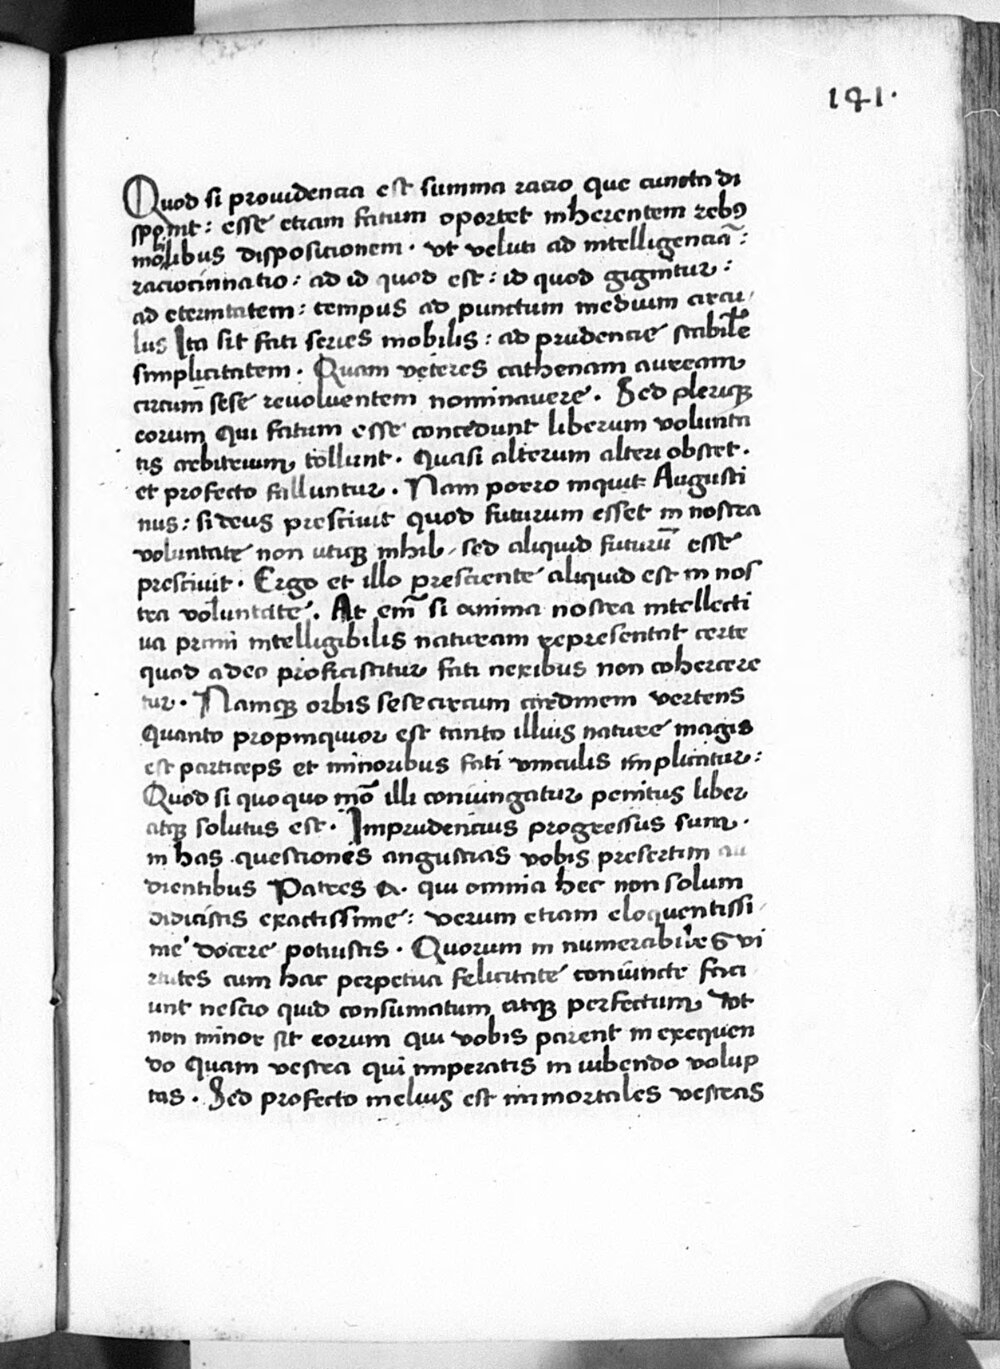 141.
Quod si prouidencia est summa racio que cuncta di
sponit: esse etiam fatum oportet inherentem rebꝯ
mobilibus dispositionem. vt veluti ad intelligenciā:
raciocinnatio: ad id quod est: id quod gignitur:
ad eternitatem: tempus ad punctum medium circu
lus Ita sit fati series mobilis: ad prudencie stabilē
simplicitatem. Quam veteres cathenam auream
circum sese reuoluentem nominauere. Sed pleriqꝫ
eorum qui fatum esse concedunt liberum volunta
tis arbitrium tollunt. quasi alterum alteri obstet.
et profecto falluntur. Nam porro inquit Augusti
nus: si deus presciuit quod futurum esset in nostra
voluntate non utiqꝫ nihil, sed aliquid futurū esse
presciuit. Ergo et illo presciente aliquid est in nos
tra voluntate. At em̄ si anima nostra intellecti
ua primi intelligibilis naturam representat certe
quod adeo proficiscitur fati nexibus non cohercere
tur. Namqꝫ orbis sese circum cardinem vertens
Quanto propinquior est tanto illius nature magis
est particeps et minoribus fati vinculis implicatur:
Quod si quoquo mō illi coniungatur penitus liber
atqꝫ solutus est. Imprudencius progressus sum.
in has questiones angustias vobis presertim au
dientibus Patres &. qui omnia hec non solum
didicistis exactissime: verum etiam eloquentissi
me docere potuistis. Quorum in numerabiles vi
rtutes cum hac perpetua felicitate coniuncte faci
unt nescio quid consumatum atqꝫ perfectum Vt
non minor sit eorum qui vobis parent in exequen
do quam vestra qui imperatis in iubendo volup
tas. Sed profecto melius est immortales vestras